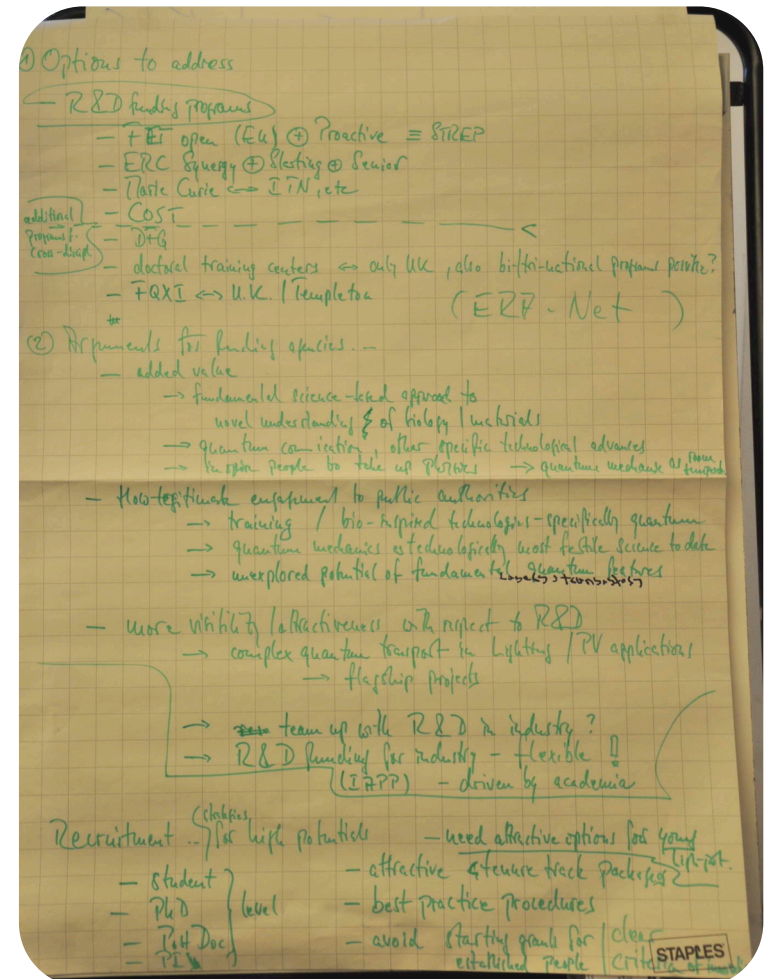 ① Options to address
— R&D funding programs
— FET open (EU) ⊕ Proactive ≡ STREP
— ERC Synergy ⊕ Starting ⊕ Senior
— Marie Curie ↔ ITN, etc
— COST
additional
programs f.
cross-discipl
— DFG
— doctoral training centers ↔ only UK, also bi/tri-national programs possible?
— FQXI ↔ U.K. / Templeton
(ERA-Net)
② Arguments for funding agencies...
— added value
→ fundamental science-based approach to
novel understanding of biology / materials
→ quantum comication, other specific technological advances
→ inspire people to take up physics → quantum mechanics as
— How legitimate engagement to public authorities
→ training / bio-inspired technologies - specifically quantum
→ quantum mechanics as technologically most fertile science to date
→ unexplored potential of fundamental quantum features
— more visibility / attractiveness with respect to R&D
→ complex quantum transport in Lighting / PV applications
→ flagship projects
→ team up with R&D in industry?
→ R&D funding for industry - flexible !
(IAPP) - driven by academia
Recruitment .. for high potentials
— Student
— PhD
— PostDoc
— PI
level
— need attractive options for young
high-pot.
— attractive tenure track packages
— best practice procedures
— avoid starting grants for
established people
clear
criteria of
STAPLES